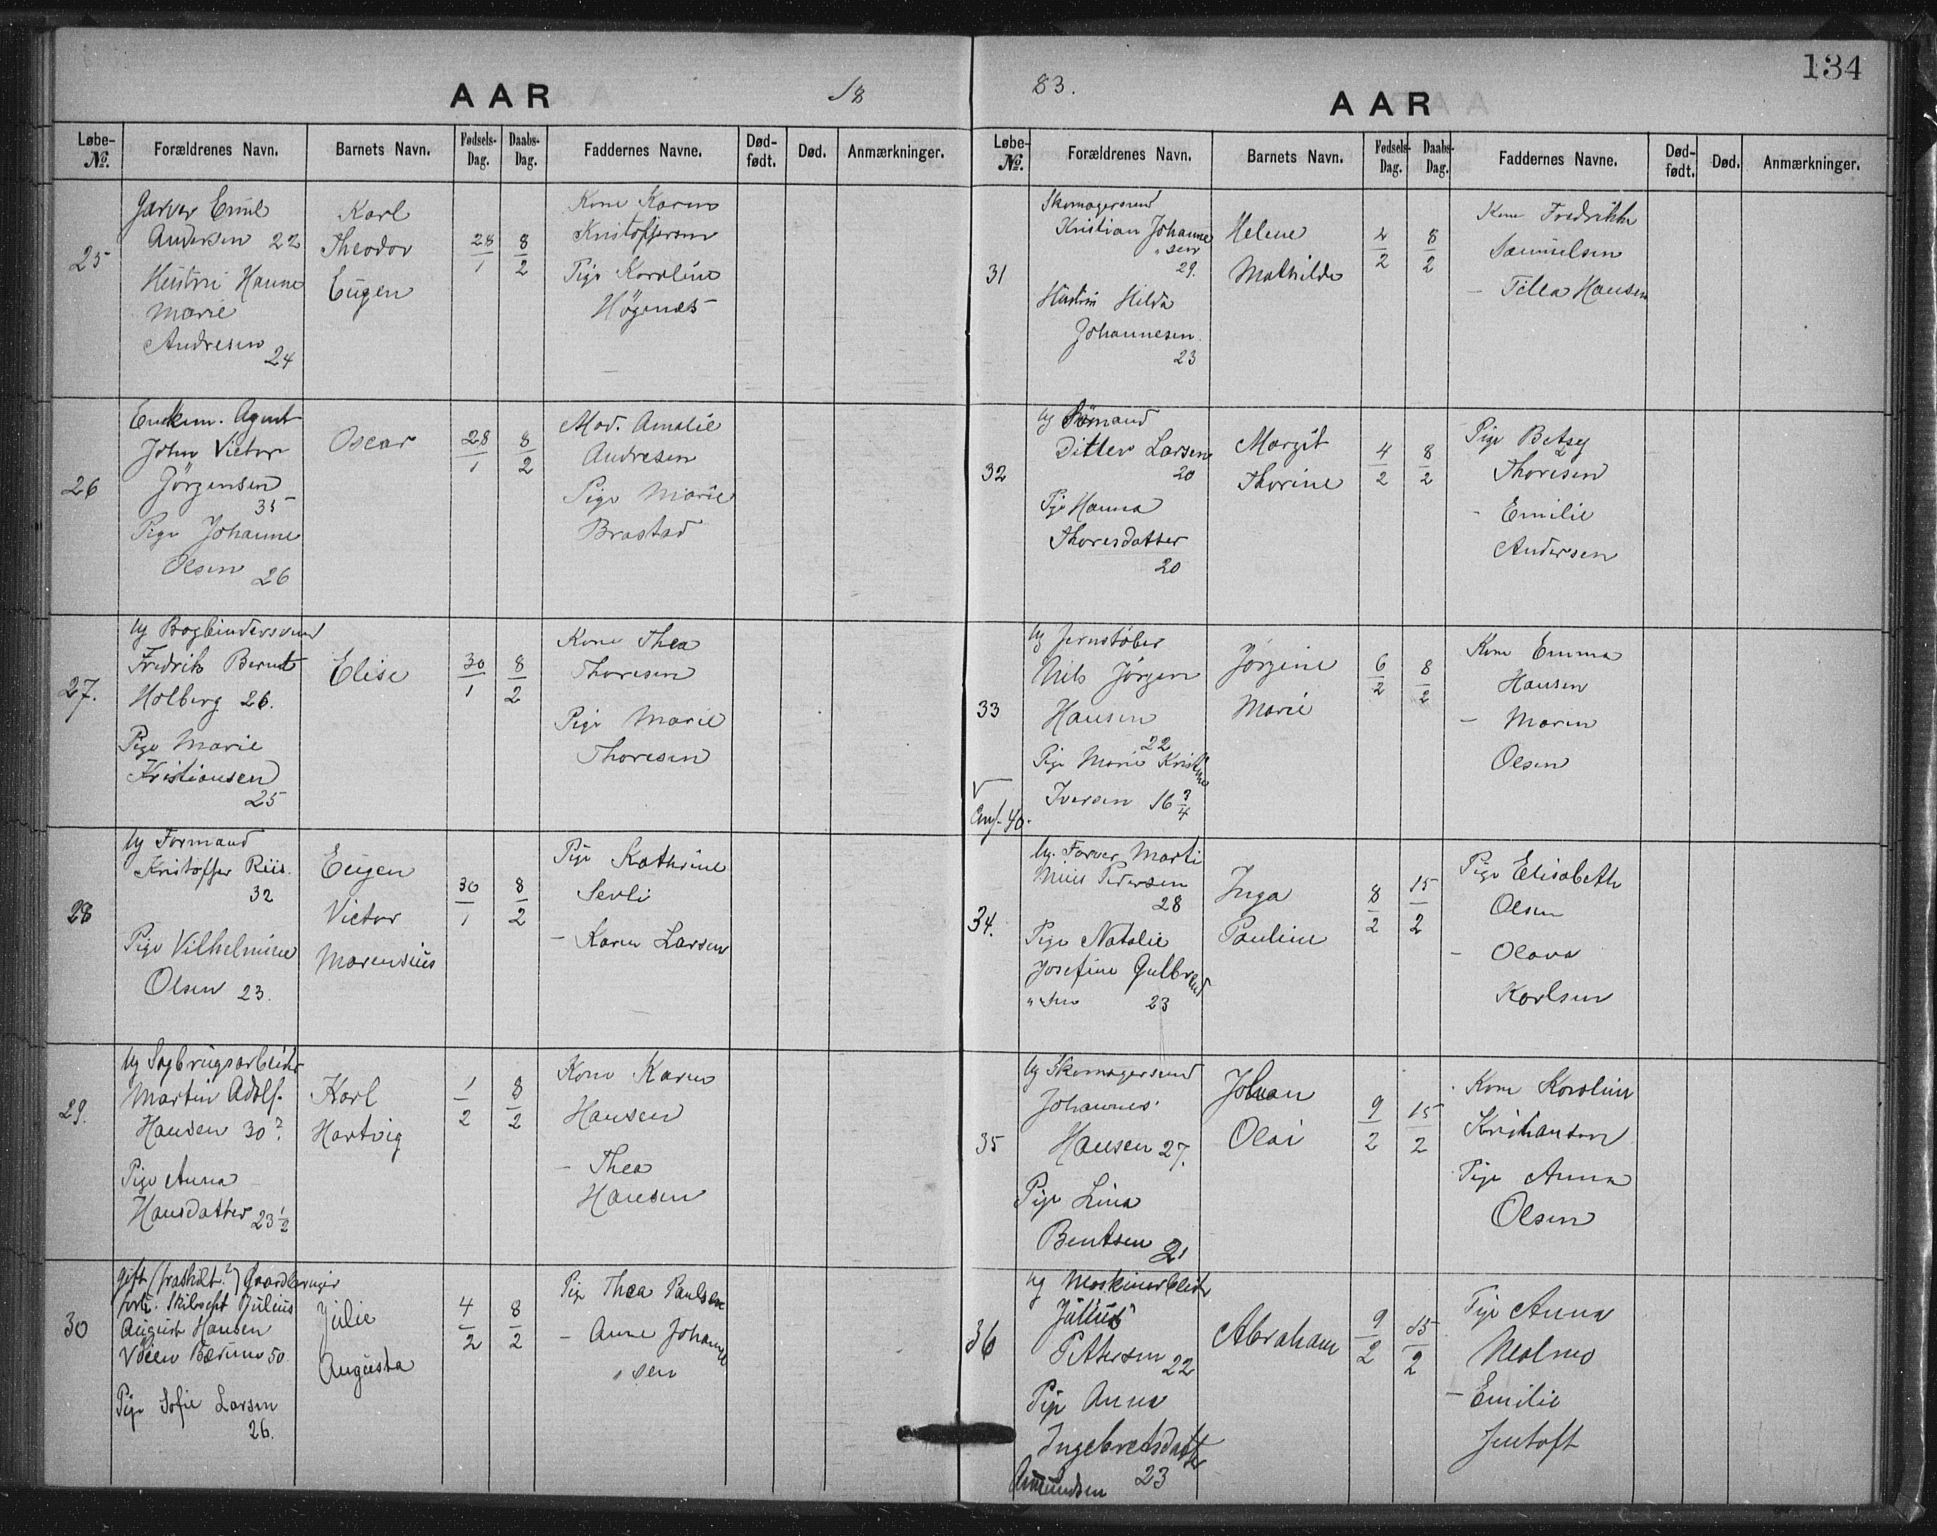 134
AAR 18
Løbe-No. Forældrenes Navn. Barnets Navn. Fødsels-Dag. Daabs-Dag. Faddernes Navne. Død-født. Død. Anmærkninger.
25
Garver Emil
Andersen 22
Hustru Hanne
Marie
Andresen 24
Karl
Theodor
Eugen
28/1
8/2
Kone Karen
Kristoffersen
Pige Karoline
Høgenæs
26
Agent
John Victor
Jørgensen
35
Pige Johanne
Olsen 26
Oscar
28/1
8/2
Mad. Amalie
Andresen
Pige Marie
Brastad
27.
Ug Bogbindersvend
Fredrik Bernt
Holberg 26.
Pige Marie
Kristiansen
25
Elise
30/1
8/2
Kone Thea
Thoresen
Pige Marie
Thoresen
28
Ug Formand
Kristoffer Riis.
32
Pige Vilhelmine
Olsen 23.
Eugen
Victor
Marensius
30/1
8/2
Pige Kathrine
Sevli
- Karen Larsen
29.
Ug Sagbrugsarbeider
Martin Adolf
Hansen 30?
Pige Anna
Hansdatter 23 1/2
Karl
Hartvig
1/2
8/2
Kone Karen
Hansen
- Thea
Hansen
30
gift (fraskilt?) Gaardbruger
Julius
August Hansen
Bærum 50
Pige Sofie Larsen
26.
Julie
Augusta
4/2
8/2
Pige Thea Paulsen
- Anne Johanne
"sen
83.
AAR
Løbe-No. Forældrenes Navn. Barnets Navn. Fødsels-Dag. Daabs-Dag. Faddernes Navne. Død-født. Død. Anmærkninger.
31
Skomagersvend
Kristian Johanne
"sen
29.
Hustru Hilda
Johannesen
23
Helene
Mathilde
4/2
8/2
Kone Fredrikke
Samuelsen
- Tilla Hansen
32
Ug Sømand
Ditlev Larsen
20
Pige Hanna
Thoresdatter
20
Margit
Thorine
4/2
8/2
Pige Betsy
Thoresen
- Emilie
Andersen
33
Ug Jernstøber
Nils Jørgen
Hansen
22
Pige Marie Kristine
Iversen 16 3/4
Jørgine
Marie
6/2
8/2
Kone Emma
Hansen
- Maren
Olsen
34.
Ug. Farver Marti
nius Pedersen
28
Pige Natalie
Josefine Gulbrand
"sen 23
Inga
Pauline
8/2
15/2
Pige Elisabeth
Olsen
- Olava
Karlsen
35
Ug Skomagersvend
Johannes
Hansen 27.
Pige Lina
Bentsen 21
Johan
Olai
9/2
15/2
Kone Karoline
Kristiansen
Pige Anna
Olsen
36
Ug Maskinarbeider
Julius
Pettersen 22
Pige Anna
Ingebretsdatter
Amundsen 23
Abraham
9/2
15/2
Pige Anna
Malmo
- Emilie
Jentoft